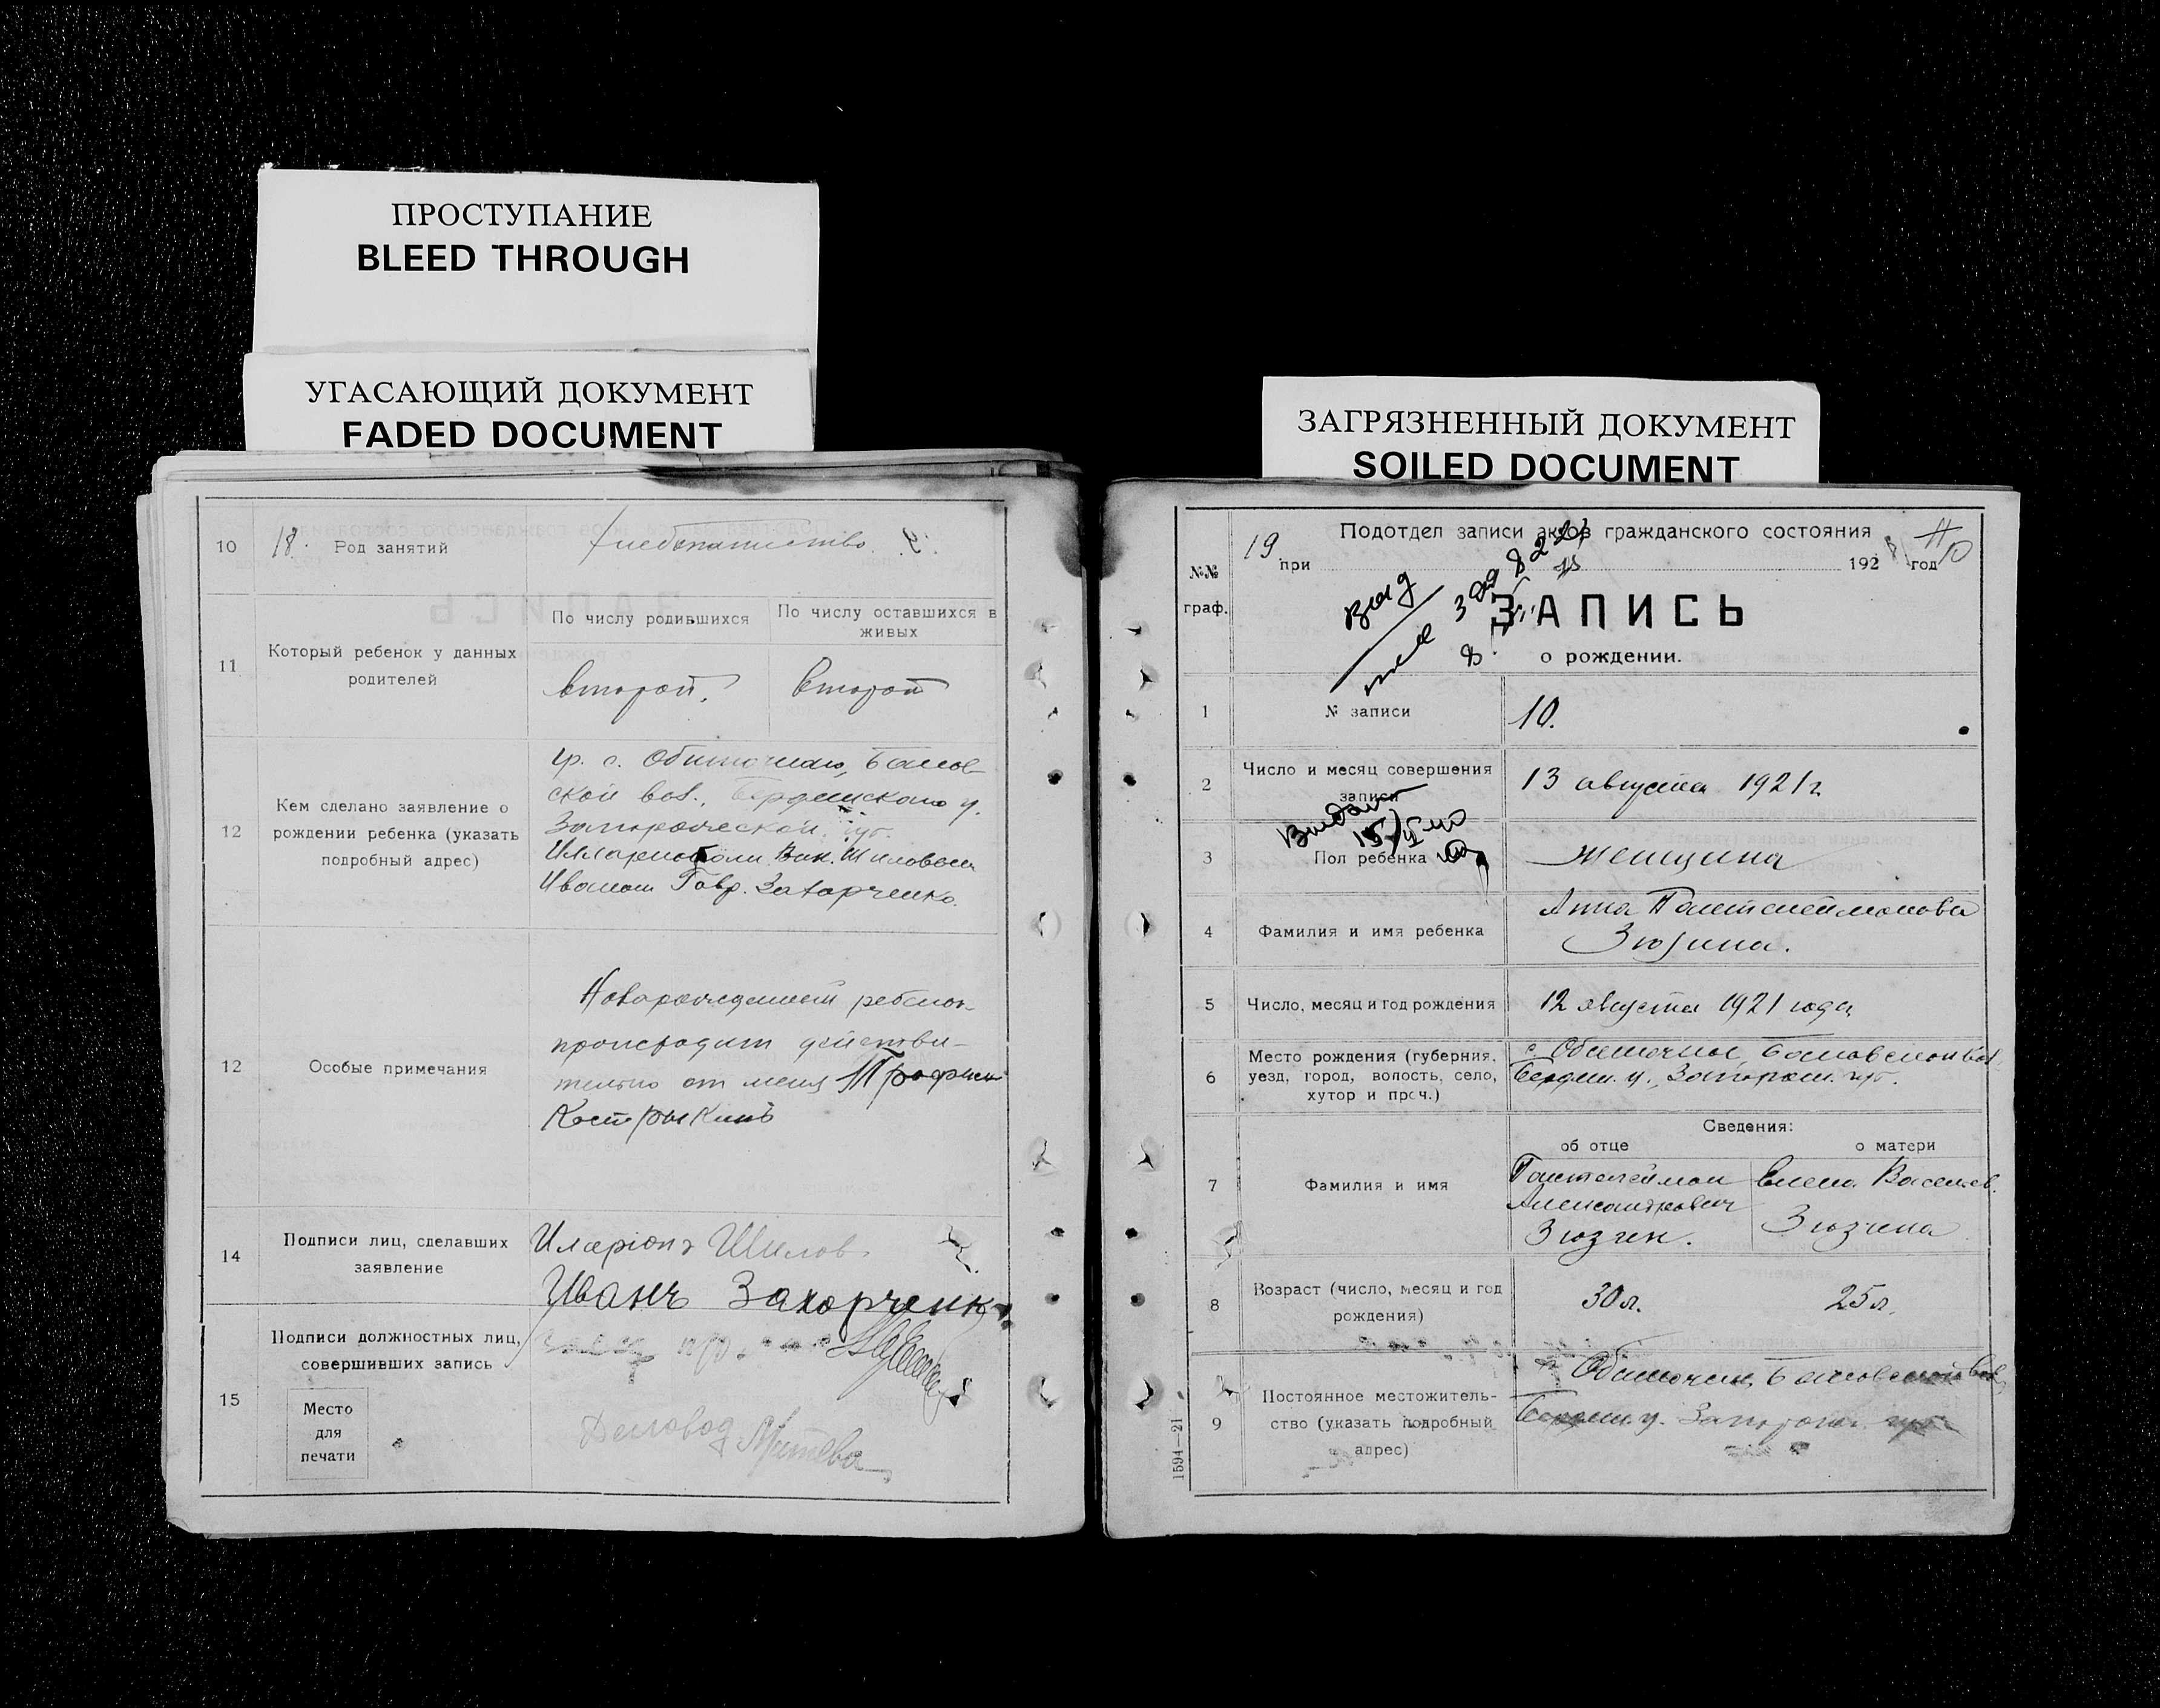 ПРОСТУПАНИЕ
BLEED THROUGH
УГАСАЮЩИЙ ДОКУМЕНТ
FADED DOCUMENT
10
18.
Род занятий
хлебопашество.
11
Который ребенок у данных
родителей
По числу родившихся
По числу оставшихся в
живых
второй.
второй
12
Кем сделано заявление о
рождении ребенка (указать
подробный адрес)
гр. с. Обиточное, Банов-
ской вол., Бердянского у.
Запорожской губ.
Илларионом Шиловым
Иваном Гавр. Захарченко.
12
Особые примечания
Новорожденный ребенок
происходит действи-
тельно от меня Трофим
Кострыкинъ
14
Подписи лиц, сделавших
заявление
Иларіонъ Шилов
Иванъ Захорченко
15
Подписи должностных лиц,
совершивших запись
Место
для
печати
Деловод
ЗАГРЯЗНЕННЫЙ ДОКУМЕНТ
SOILED DOCUMENT
№№
граф.
19
Подотдел записи актов гражданского состояния
при
192
год
ЗАПИСЬ
о рождении.
1
№ записи
10.
2
Число и месяц совершения
записи
13 августа 1921 г.
3
Пол ребенка
женщина
4
Фамилия и имя ребенка
Анна Пантелеймонова
Зюзина.
5
Число, месяц и год рождения
12 августа 1921 года
6
Место рождения (губерния,
уезд, город, волость, село,
хутор и проч.)
с. Обиточное, Бановской вол.
Бердян. у., Запорож. губ.
Сведения:
об отце
о матери
7
Фамилия и имя
Пантелеймон
Александрович
Зюзин.
Елена Васильев.
Зюзина
8
Возраст (число, месяц и год
рождения)
30 л.
25 л.
9
Постоянное местожитель-
ство (указать подробный
адрес)
с. Обиточное, Бановской вол.
Бердян. у. Запорож. губ.
1594—21